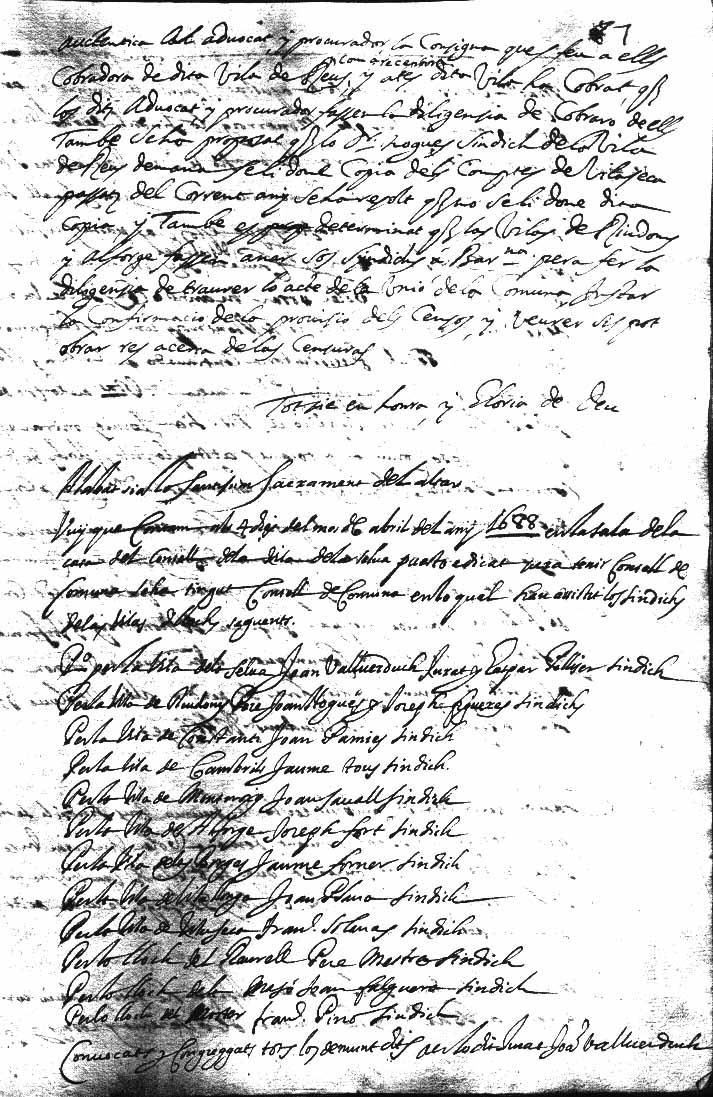 auctentica als advocat, y procurador la Consigna ques feu a ells
Cobradors de dita Vila de Reus, y ates dita Vila ha Cobrat, q̃
los dits Advocat, y procurador fassen la diligensia de Cobraro de ells
Tambe seha proposat q̃ lo Sr. Nogues Sindich de la Vila
de Reus demana seli done Copia dels Comptes de Vilaseca
passats del Corrent any seha resolt q̃ no seli done dita
Copia y Tambe es determinat q̃ las Vilas de Riudoms
y Alforge fassen anar sos sindichs a Bar.na pera fer la
diligensia de traurer lo acte de la Unio de la Comuna, Instar
la Confirmacio de la provisio dels Censos, y veurer sis pot
obrar res acerca de las Censuras
Tot sie en honra, y Gloria de Deu
Alabat sia lo Santisim Sacrament del altar
Vuy que Contam als 4 dies del mes de abril del any 1688 en la sala de la
casa del Consell de la vila de la selva puesto edicat pera tenir Consell de
Comuna seha tingut Consell de Comuna en lo qual han assistit los sindichs
de las vilas y llochs seguents.
P.o per la Vila dela Selva Joan Vallverduch Jurat y Gaspar Pellisser sindich
Per la Vila de Riudoms Pere Joan Nogues y Joseph figueres sindichs
Per la Vila de Constanti Joan Pamies sindich
Per la Vila de Cambrils Jaume tous sindich.
Per la Vila de Monroig Joan Savall sindich
Per la Vila del Alforge Joseph fort sindich
Per la Vila deles Borges Jaume forner sindich
Per la Vila de Vilallonga Joan Plana sindich
Per la Vila de Vilaseca Fran.c Solanas sindich
Per lo lloch del Rourell Pere Mestre sindich
Per lo lloch dela Maso Joan falguera sindich
Per lo lloch del Morter fran.c Pino sindich
Convocats y Congreggats tots los demunt dits per lo dit Jurat Joã Vallverduch